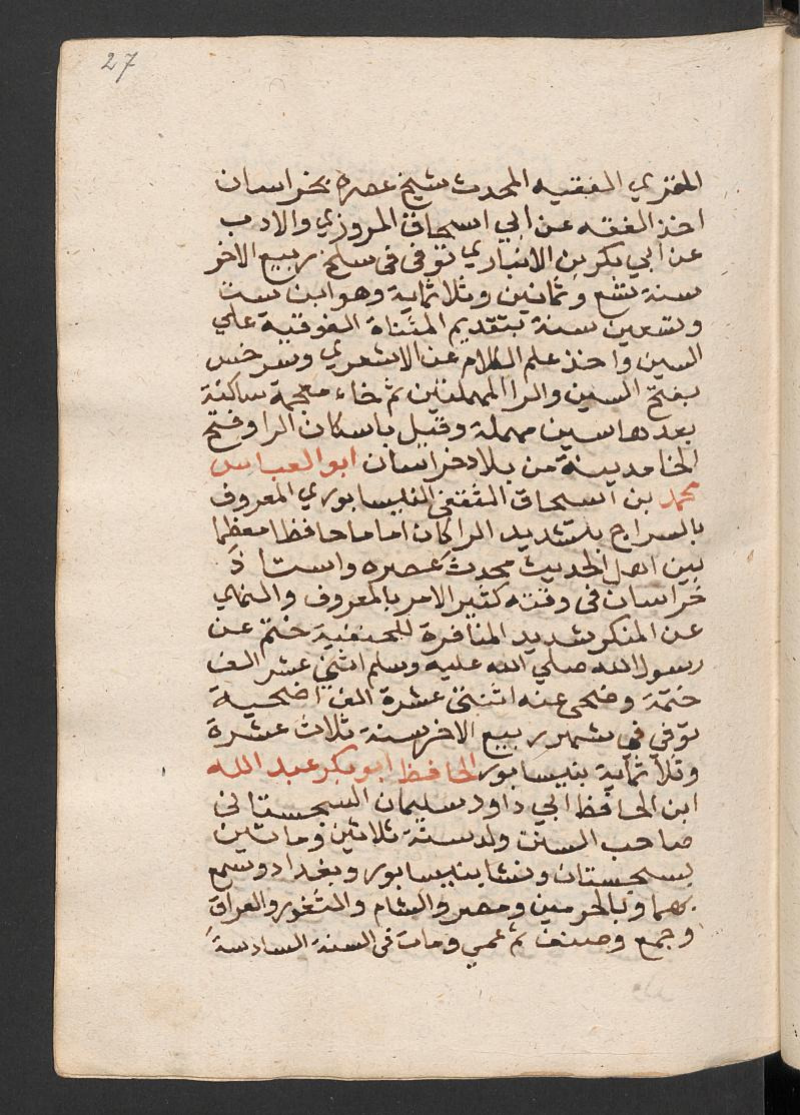 27
المقري الفقيه المحدث شيخ عصره بخراسان
اخذ الفقه عن ابي اسحاق المروزي والادب
عن ابي بكر بن الانباري توفى فى سلخ ربيع الاخر
سنة تسع وثمانين وثلاثماية وهو ابن ست
وتسعين سنة بتقديم المثناة الفوقية علي
السين واخذ علم الكلام عن الاشعري وسرخس
بفتح السين والرا المهملتين ثم خاء معجمة ساكنة
بعدها سين مهملة وقيل باسكان الرا وفتح
الخا مدينة من بلاد خراسان ابو العباس
محمد بن اسحاق الثقفى النيسابوري المعروف
بالسراج بتشديد الرا كان اماما حافظا معظما
بين اهل الحديث محدث عصره واستاذ
خراسان فى وقته كثير الامر بالمعروف والنهي
عن المنكر شديد المنافرة للحنفية ختم عن
رسول الله صلي الله عليه وسلم اثني عشر الف
ختمة وضحى عنه اثنتى عشرة الف اضحية
توفي في شهر ربيع الاخر سنة ثلاث عشرة
وثلاثماية بنيسابور الحافظ ابو بكر عبد الله
ابن الحافظ ابي داود سليمان السجستانى
صاحب السنن ولد سنة ثلاثين وماتين
بسجستان ونشا بنيسابور وبغداد وسمع
بهما وبالحرمين ومصر والشام والثغور والعراق
وجمع وصنف ثم عمي ومات فى السنة السادسة